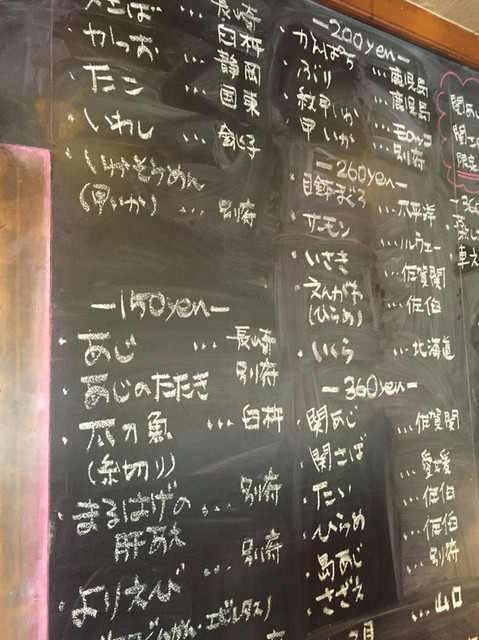 ・かつお ... 臼杵
・たこ ... 静岡
・いわし ... 国東
銚子
・いかそうめん
(甲いか) ... 別府
-150yen-
・あじ ... 長崎
別府
・あじのたたき
・太刀魚 ... 臼杵
(糸切り)
・まるはげの ... 別府
肝あえ
・よりえび ... 別府
-200yen-
・かんぱち ... 鹿児島
・ぶり ... 鹿児島
・紋甲いか ... モロッコ
・甲いか ... 別府
-260yen-
・目鉢まぐろ ... 太平洋
・サーモン ... ノルウェー
・いさき ... 佐賀関
・えんがわ ... 佐伯
(ひらめ)
・いくら ... 北海道
-360yen-
・関あじ ... 佐賀関
・関さば ... 愛媛
・たい ... 佐伯
・ひらめ ... 佐伯
・島あじ ... 別府
・さざえ ... 山口
関あ
関
限定